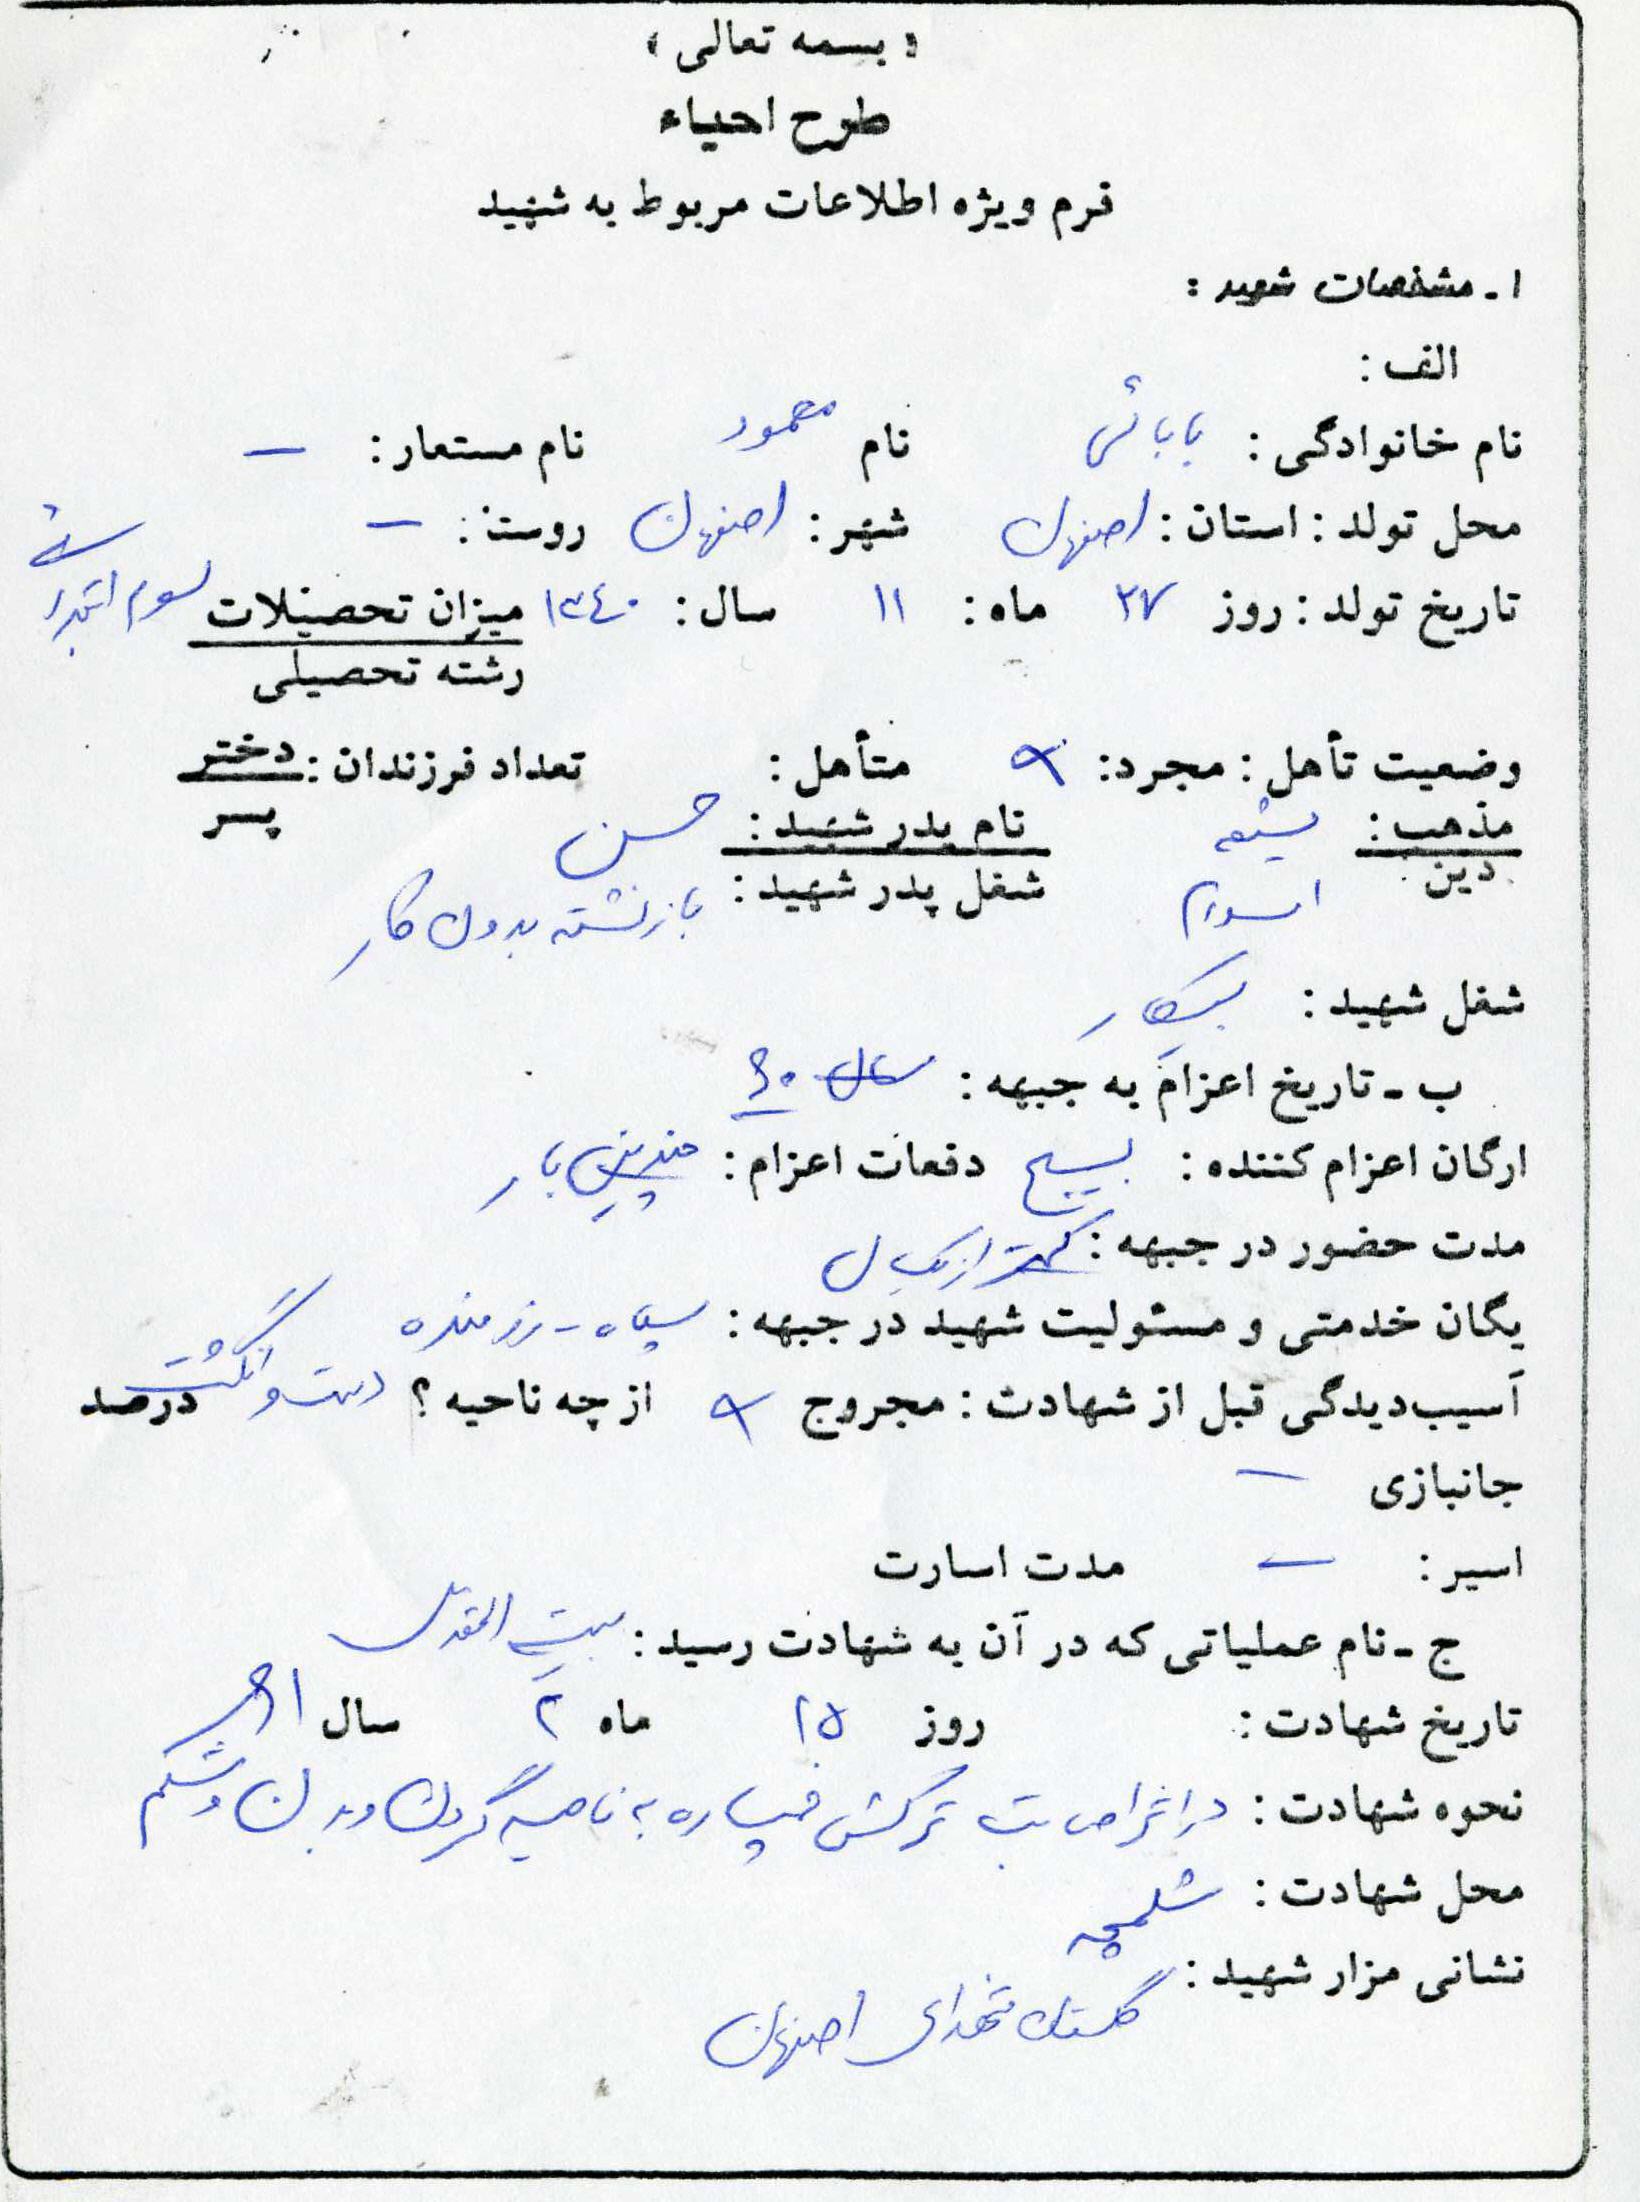 « بسمه تعالی »
طرح احیاء
فرم ویژه اطلاعات مربوط به شهید
۱ - مشخصات شهید :
الف :
نام خانوادگی : بابائی نام محمود نام مستعار : –
محل تولد : استان : اصفهان شهر : اصفهان روستا : –
تاریخ تولد : روز ۲۷ ماه : ۱۱ سال : ۱۳۴۰ میزان تحصیلات سوم ابتدائی
رشته تحصیلی
وضعیت تأهل : مجرد : متأهل : تعداد فرزندان : دختر
پسر
مذهب : شیعه نام پدر شهید : حسن
دین : اسلام شغل پدر شهید : بازنشسته بدون کار
شغل شهید : بیکار
ب - تاریخ اعزام به جبهه : سال ۶۰
ارگان اعزام کننده : بسیج دفعات اعزام : چندین بار
مدت حضور در جبهه : کمتر از یکسال
یگان خدمتی و مسئولیت شهید در جبهه : سپاه - رزمنده
آسیب‌دیدگی قبل از شهادت : مجروح از چه ناحیه ؟ دست و انگشت درصد
جانبازی –
اسیر : – مدت اسارت
ج - نام عملیاتی که در آن به شهادت رسید : بیت المقدس
تاریخ شهادت : روز ۲۵ ماه ۲ سال ۶۱
نحوه شهادت : در اثر اصابت ترکش خمپاره به ناحیه گردن و بدن و شکم
محل شهادت : شلمچه
نشانی مزار شهید : گلستان شهدای اصفهان